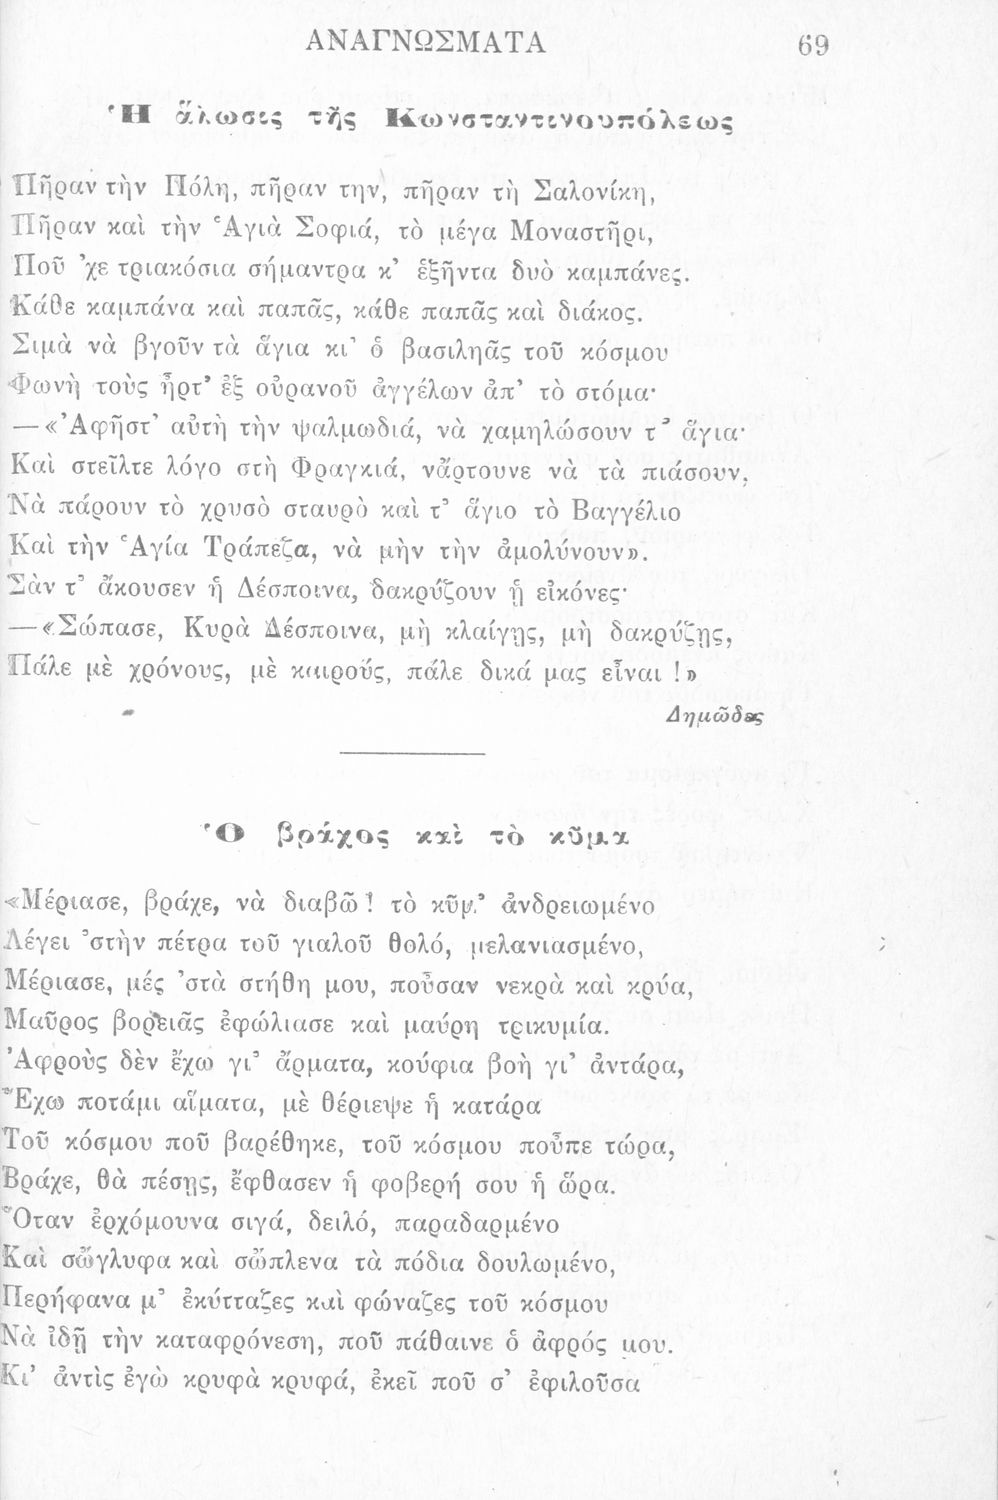 ΑΝΑΓΝΩΣΜΑΤΑ 69
Ἡ ἅλωσις τῆς Κωνσταντινουπόλεως
Πῆραν τὴν Πόλη, πῆραν την, πῆραν τὴ Σαλονίκη,
Πῆραν καὶ τὴν Ἁγιὰ Σοφιά, τὸ μέγα Μοναστῆρι,
Ποῦ ’χε τριακόσια σήμαντρα κ’ ἑξῆντα δυὸ καμπάνες.
Κάθε καμπάνα καὶ παπᾶς, κάθε παπᾶς καὶ διάκος.
Σιμὰ νὰ βγοῦν τὰ ἅγια κι’ ὁ βασιληᾶς τοῦ κόσμου
Φωνὴ τοὺς ἦρτ’ ἐξ οὐρανοῦ ἀγγέλων ἀπ’ τὸ στόμα·
—«Ἀφῆστ’ αὐτὴ τὴν ψαλμωδιά, νὰ χαμηλώσουν τ’ ἅγια·
Καὶ στεῖλτε λόγο στὴ Φραγκιά, νἄρτουνε νὰ τὰ πιάσουν,
Νὰ πάρουν τὸ χρυσὸ σταυρὸ καὶ τ’ ἅγιο τὸ Βαγγέλιο
Καὶ τὴν Ἁγία Τράπεζα, νὰ μὴν τὴν ἀμολύνουν».
Σὰν τ’ ἄκουσεν ἡ Δέσποινα, δακρύζουν ᾑ εἰκόνες·
—«Σώπασε, Κυρὰ Δέσποινα, μὴ κλαίγῃς, μὴ δακρύζῃς,
Πάλε μὲ χρόνους, μὲ καιρούς, πάλε δικά μας εἶναι !»
Δημῶδες
Ὁ βράχος καὶ τὸ κῦμα
«Μέριασε, βράχε, νὰ διαβῶ ! τὸ κῦμ’ ἀνδρειωμένο
Λέγει ’στὴν πέτρα τοῦ γιαλοῦ θολό, μελανιασμένο,
Μέριασε, μές ’στὰ στήθη μου, ποὖσαν νεκρὰ καὶ κρύα,
Μαῦρος βορειᾶς ἐφώλιασε καὶ μαύρη τρικυμία.
Ἀφροὺς δὲν ἔχω γι’ ἄρματα, κούφια βοὴ γι’ ἀντάρα,
Ἔχω ποτάμι αἵματα, μὲ θέριεψε ἡ κατάρα
Τοῦ κόσμου ποῦ βαρέθηκε, τοῦ κόσμου ποὖπε τώρα,
Βράχε, θὰ πέσῃς, ἔφθασεν ἡ φοβερή σου ἡ ὥρα.
Ὅταν ἐρχόμουνα σιγά, δειλό, παραδαρμένο
Καὶ σὤγλυφα καὶ σὤπλενα τὰ πόδια δουλωμένο,
Περήφανα μ’ ἐκύτταζες καὶ φώναζες τοῦ κόσμου
Νὰ ἰδῇ τὴν καταφρόνεση, ποῦ πάθαινε ὁ ἀφρός μου.
Κι’ ἀντὶς ἐγὼ κρυφὰ κρυφά, ἐκεῖ ποῦ σ’ ἐφιλοῦσα